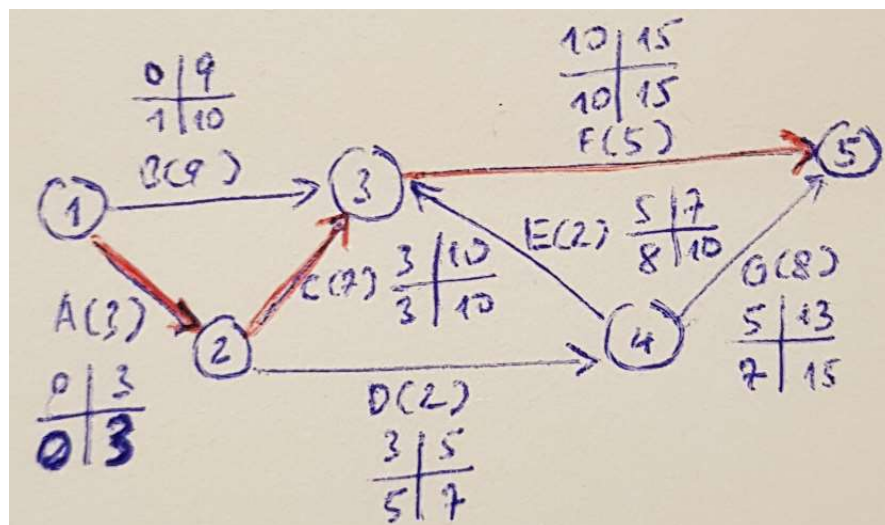 0 | 9
1 | 10
B(9)
10 | 15
10 | 15
F(5)
1
3
5
A(3)
0 | 3
0 | 3
2
C(7)
3 | 10
3 | 10
E(2)
5 | 7
8 | 10
4
G(8)
5 | 13
7 | 15
D(2)
3 | 5
5 | 7